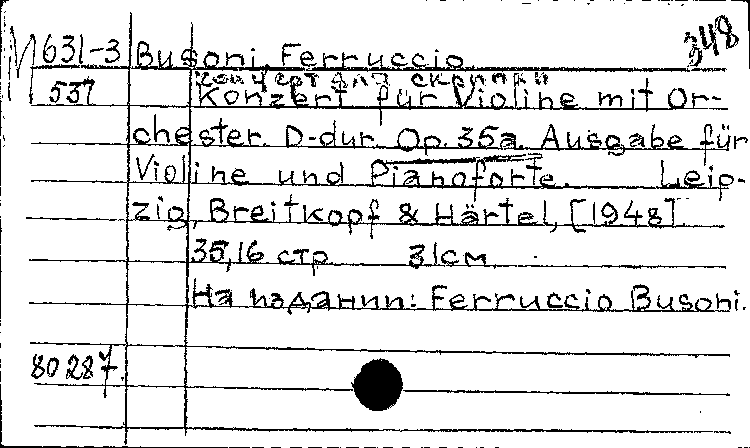 М 631-3 Busoni, Ferruccio 348
537 концерт для скрипки
Konzert für Violine mit Or-
chester. D-dur. Op. 35a. Ausgabe für
Violine und Pianoforte. Leip-
zig, Breitkopf & Härtel, [1948].
35,16 стр 31см.
На издании: Ferruccio Busoni.
80287